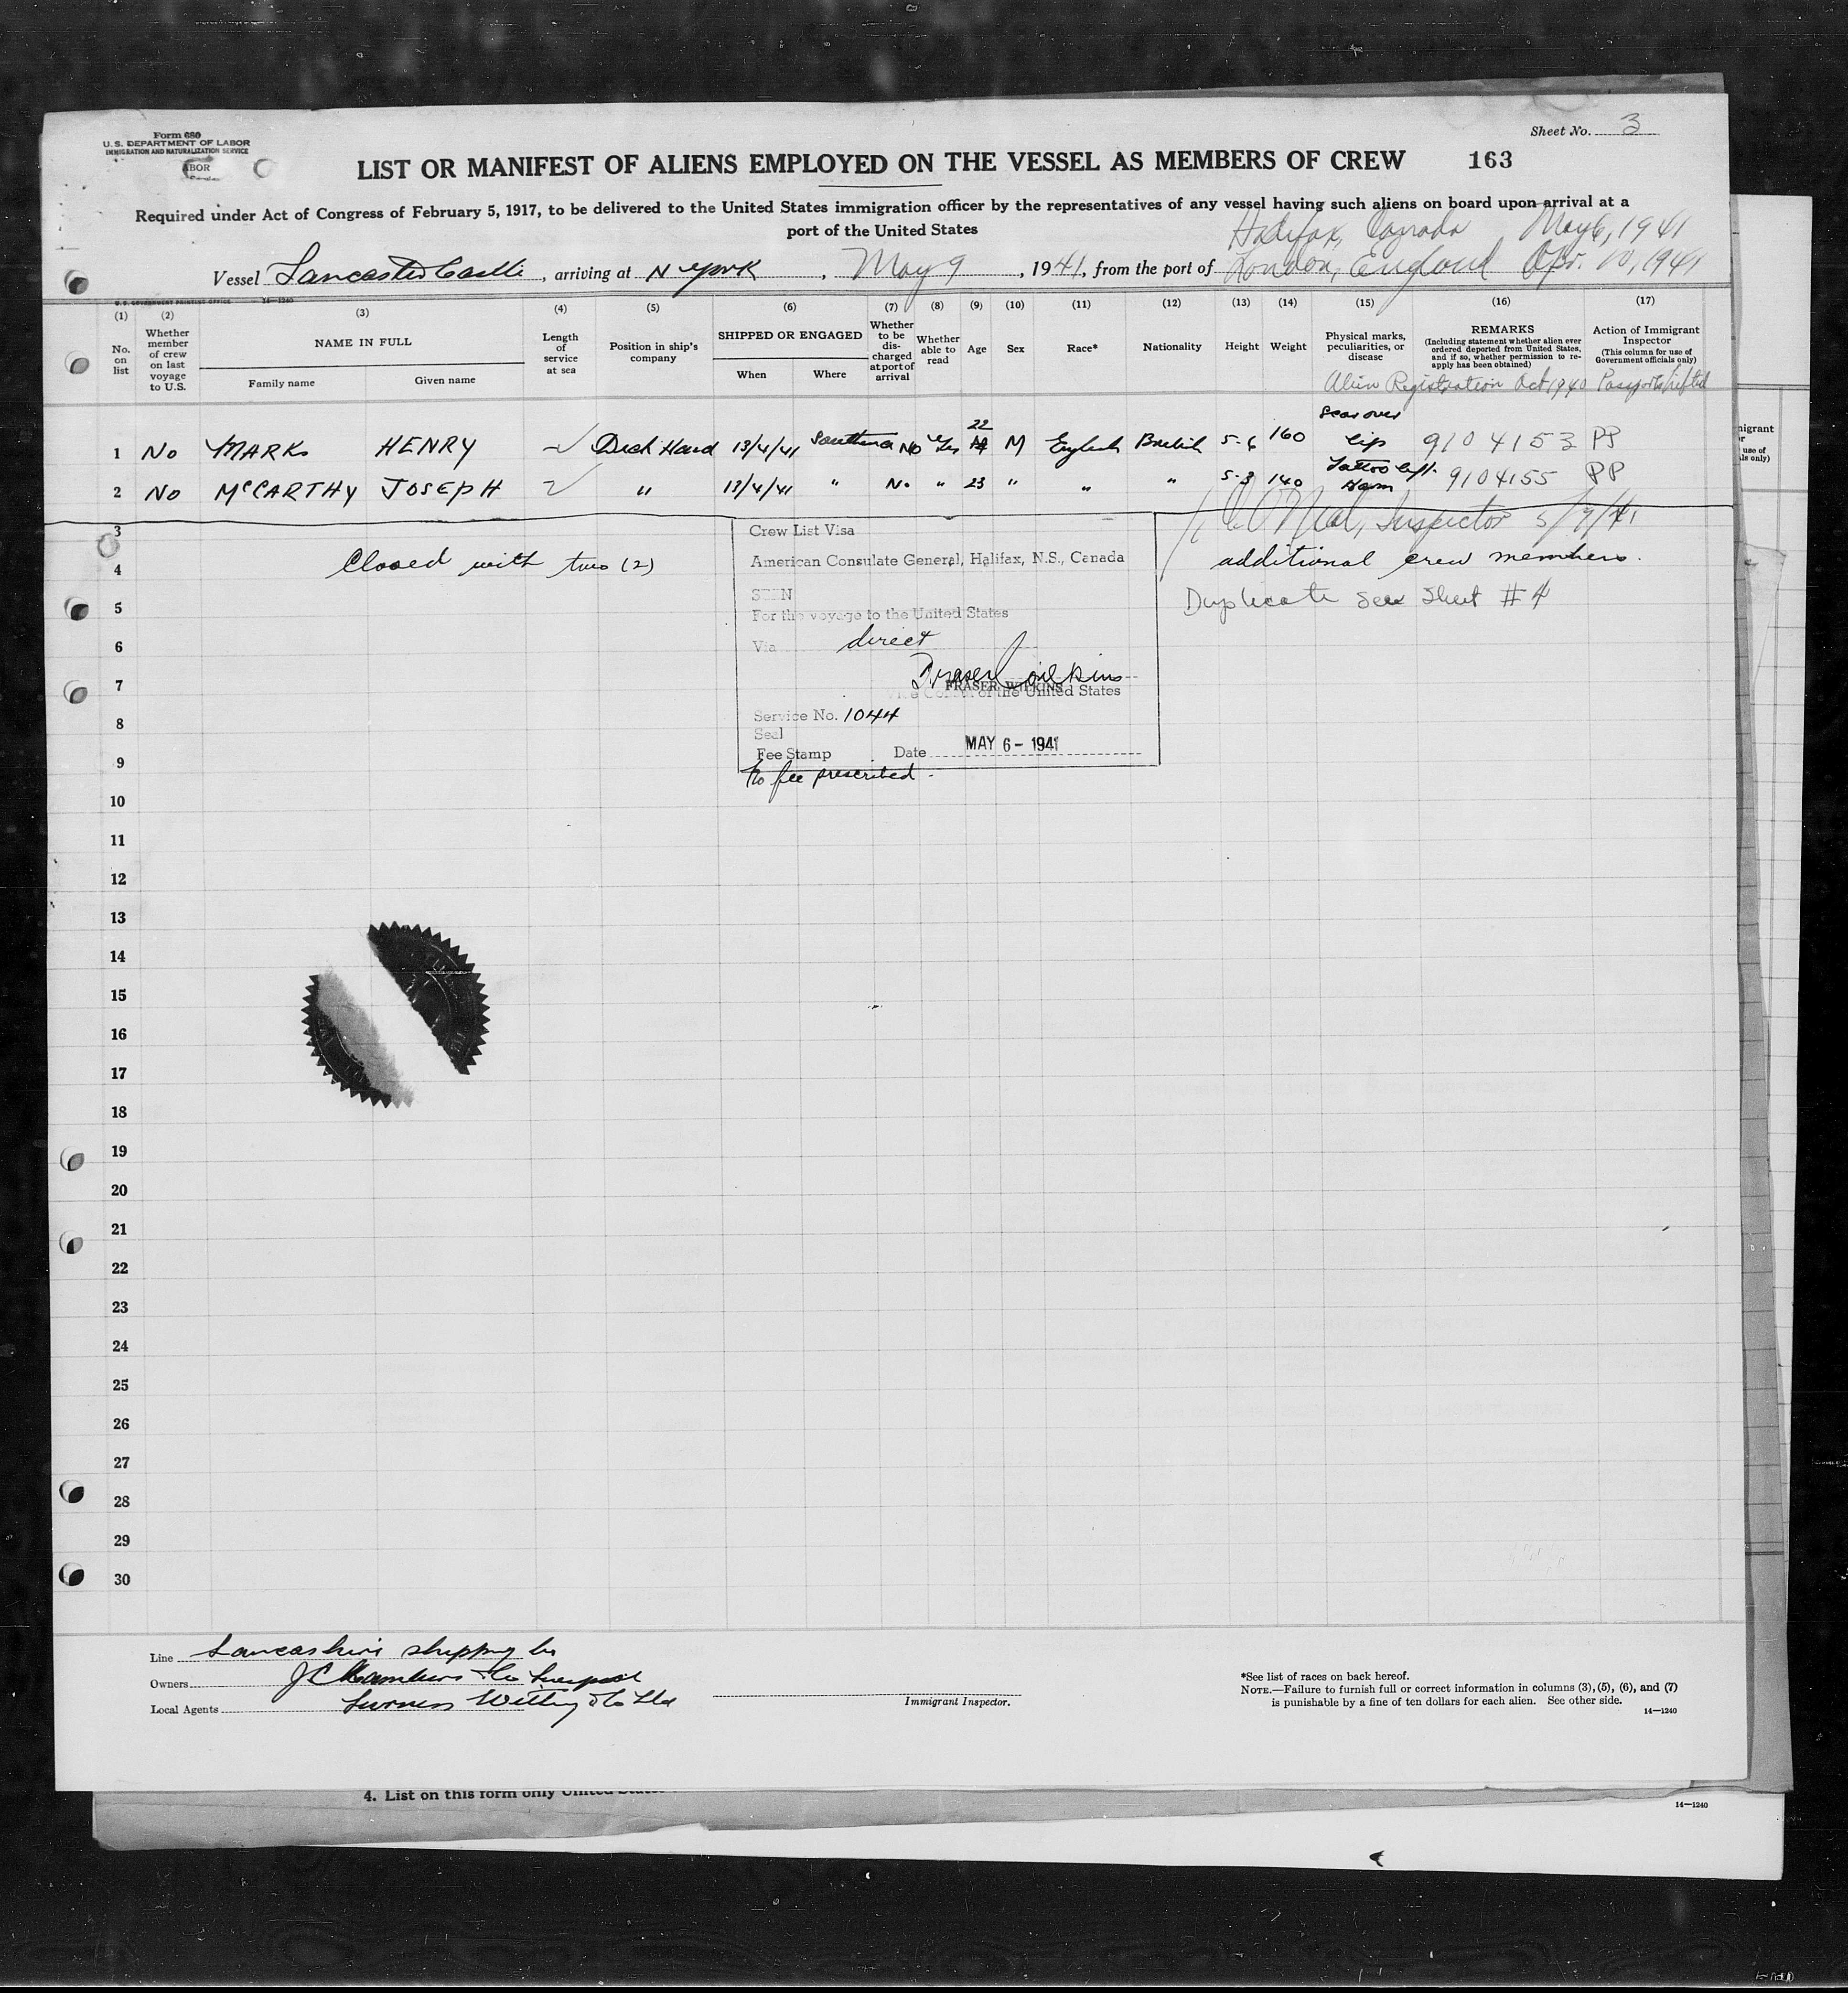 Form 680
U.S. DEPARTMENT OF LABOR
IMMIGRATION AND NATURALIZATION SERVICE
Sheet No. 3
LIST OR MANIFEST OF ALIENS EMPLOYED ON THE VESSEL AS MEMBERS OF CREW 163
Required under Act of Congress of February 5, 1917, to be delivered to the United States immigration officer by the representatives of any vessel having such aliens on board upon arrival at a
port of the United States
Halifax, Canada May 6, 1941
Vessel Lancaster Castle, arriving at N York, May 9, 1941, from the port of London, England Apr. 10, 1941
U.S. GOVERNMENT PRINTING OFFICE 14—1240
(1) No. on list
(2) Whether member of crew on last voyage to U.S.
(3) NAME IN FULL
Family name Given name
(4) Length of service at sea
(5) Position in ship's company
(6) SHIPPED OR ENGAGED
When Where
(7) Whether to be discharged at port of arrival
(8) Whether able to read
(9) Age
(10) Sex
(11) Race*
(12) Nationality
(13) Height
(14) Weight
(15) Physical marks, peculiarities, or disease
(16) REMARKS
(Including statement whether alien ever ordered deported from United States, and if so, whether permission to reapply has been obtained)
(17) Action of Immigrant Inspector
(This column for use of Government officials only)
Alien Registration Oct 1940 Passports lifted
1 No MARKS HENRY Deck Hand 13/4/41 No Yes 22 M English British 5-6 160 Scar over lip 9104153 PP
2 No McCARTHY JOSEPH " 13/4/41 " No " 23 " " " 5-3 140 Tattoo left 9104155 PP
O'Neal, Inspector 5/9/41
3
4 Closed with two (2) additional crew members.
Duplicate see Sheet #4
Crew List Visa
American Consulate General, Halifax, N.S., Canada
SEEN
For the voyage to the United States
Via direct
Fraser Wilkins
FRASER WILKINS
Vice Consul of the United States
Service No. 1044
Seal
Fee Stamp Date MAY 6 - 1941
No fee prescribed.
5
6
7
8
9
10
11
12
13
14
15
16
17
18
19
20
21
22
23
24
25
26
27
28
29
30
Line Lancashire Shipping Co
Owners J Chambers & Co Liverpool
Local Agents Furness Withy & Co Ltd
Immigrant Inspector.
*See list of races on back hereof.
NOTE.—Failure to furnish full or correct information in columns (3), (5), (6), and (7)
is punishable by a fine of ten dollars for each alien. See other side.
14—1240
4. List on this form only United States
14—1240